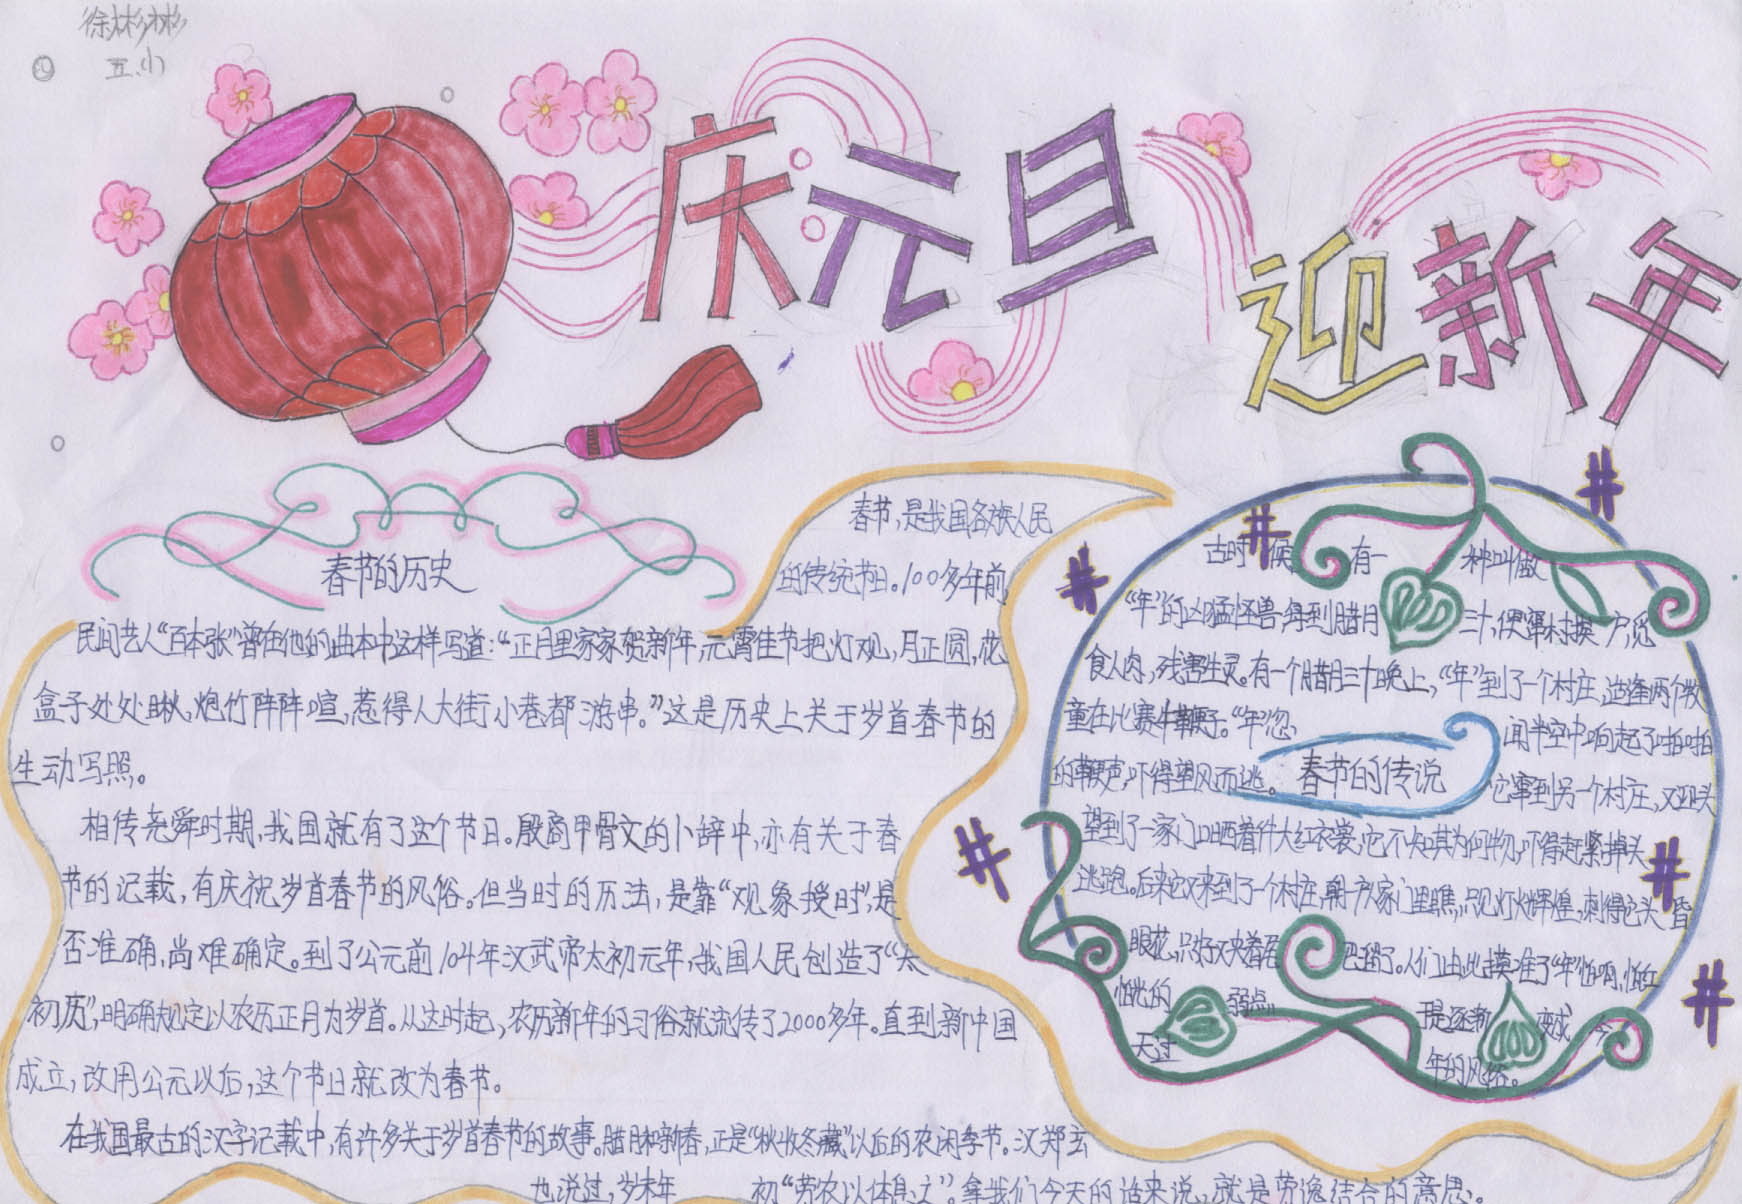 徐彬彬
五.(1)
庆元旦
迎新年
春节的历史
春节,是我国各族人民
的传统节日。100多年前
民间艺人“百本张”曾在他的曲本中这样写道:“正月里家家贺新年,元霄佳节把灯观,月正圆,花
盒子处处瞅,炮竹阵阵喧,惹得人大街小巷都游串。”这是历史上关于岁首春节的
生动写照。
相传尧舜时期,我国就有了这个节日。殷商甲骨文的卜辞中,亦有关于春
节的记载,有庆祝岁首春节的风俗。但当时的历法,是靠“观象授时”,是
否准确,尚难确定。到了公元前104年汉武帝太初元年,我国人民创造了“太
初历”,明确规定以农历正月为岁首。从这时起,农历新年的习俗就流传了2000多年。直到新中国
成立,改用公元以后,这个节日就改为春节。
在我国最古的汉字记载中,有许多关于岁首春节的故事。腊月和新春,正是“秋收冬藏”以后的农闲季节。汉郑玄
也说过,岁末年初“劳农以休息之”。拿我们今天的话来说,就是劳逸结合的意思。
春节的传说
古时候,有一种叫做
“年”的凶猛怪兽,每到腊月三十,便窜村挨户,觅
食人肉,残害生灵。有一个腊月三十晚上,“年”到了一个村庄,适逢两个牧
童在比赛牛鞭子。“年”忽闻半空中响起了啪啪
的鞭声,吓得望风而逃。它窜到另一个村庄,又迎头
望到了一家门口晒着件大红衣裳,它不知其为何物,吓得赶紧掉头
逃跑。后来它又来到了一个村庄,朝一户家门里瞧,只见灯火辉煌,刺得它头昏
眼花,只好夹着尾巴溜了。人们由此摸准了“年”怕响,怕红
怕光的弱点
于是逐渐变成今
天过年的风俗。